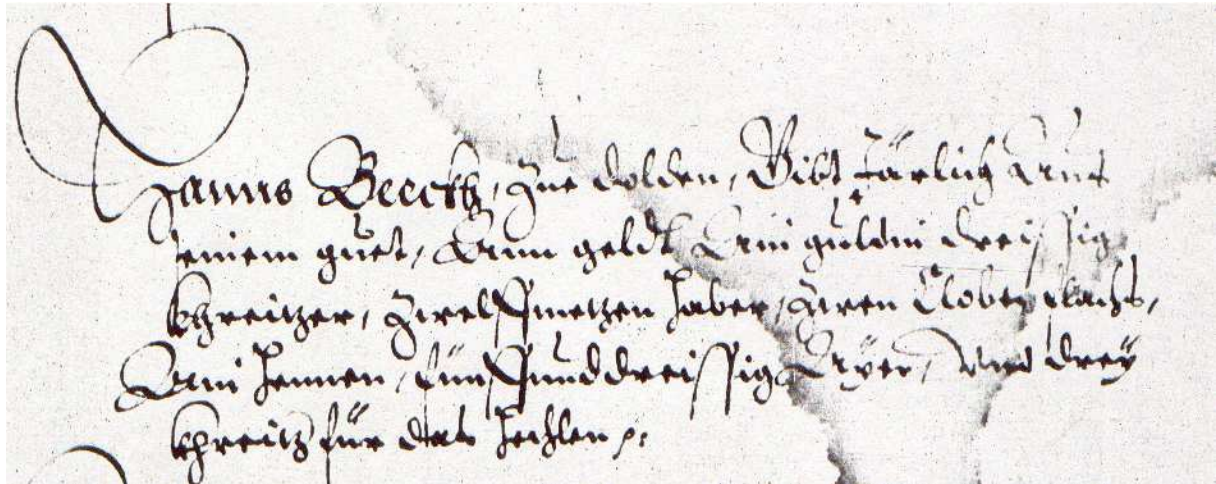 Hanns Beeckh, zue dolden, Gibt järlich Aus
seinem guet, Ann geldt Ain guldin dreissig
khreitzer, zwelffmetzen haber, zwen Cloben flachs,
Ain hennen, fünffunddreissig Ayer, vnd drey
khreitz für das hechlen